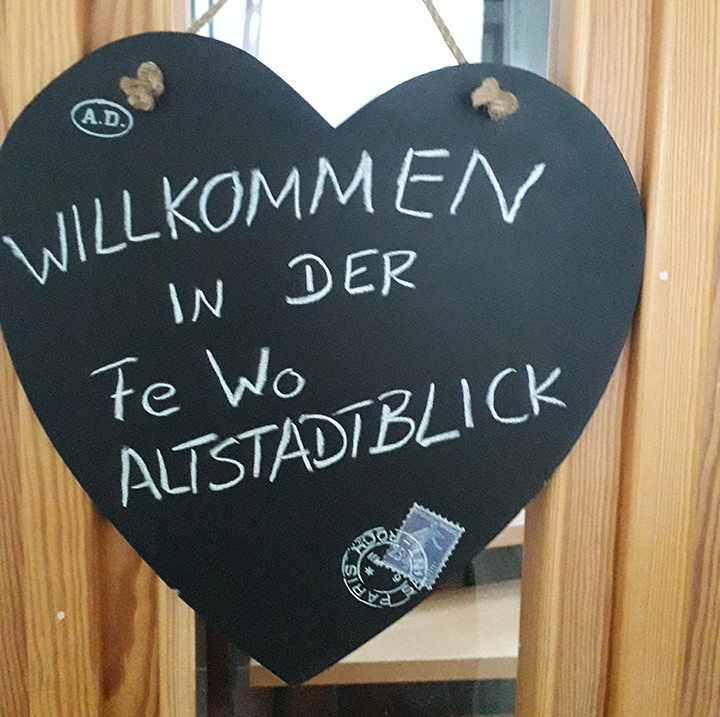 A.D.
WILLKOMMEN
IN DER
FeWo
ALTSTADTBLICK
PARIS